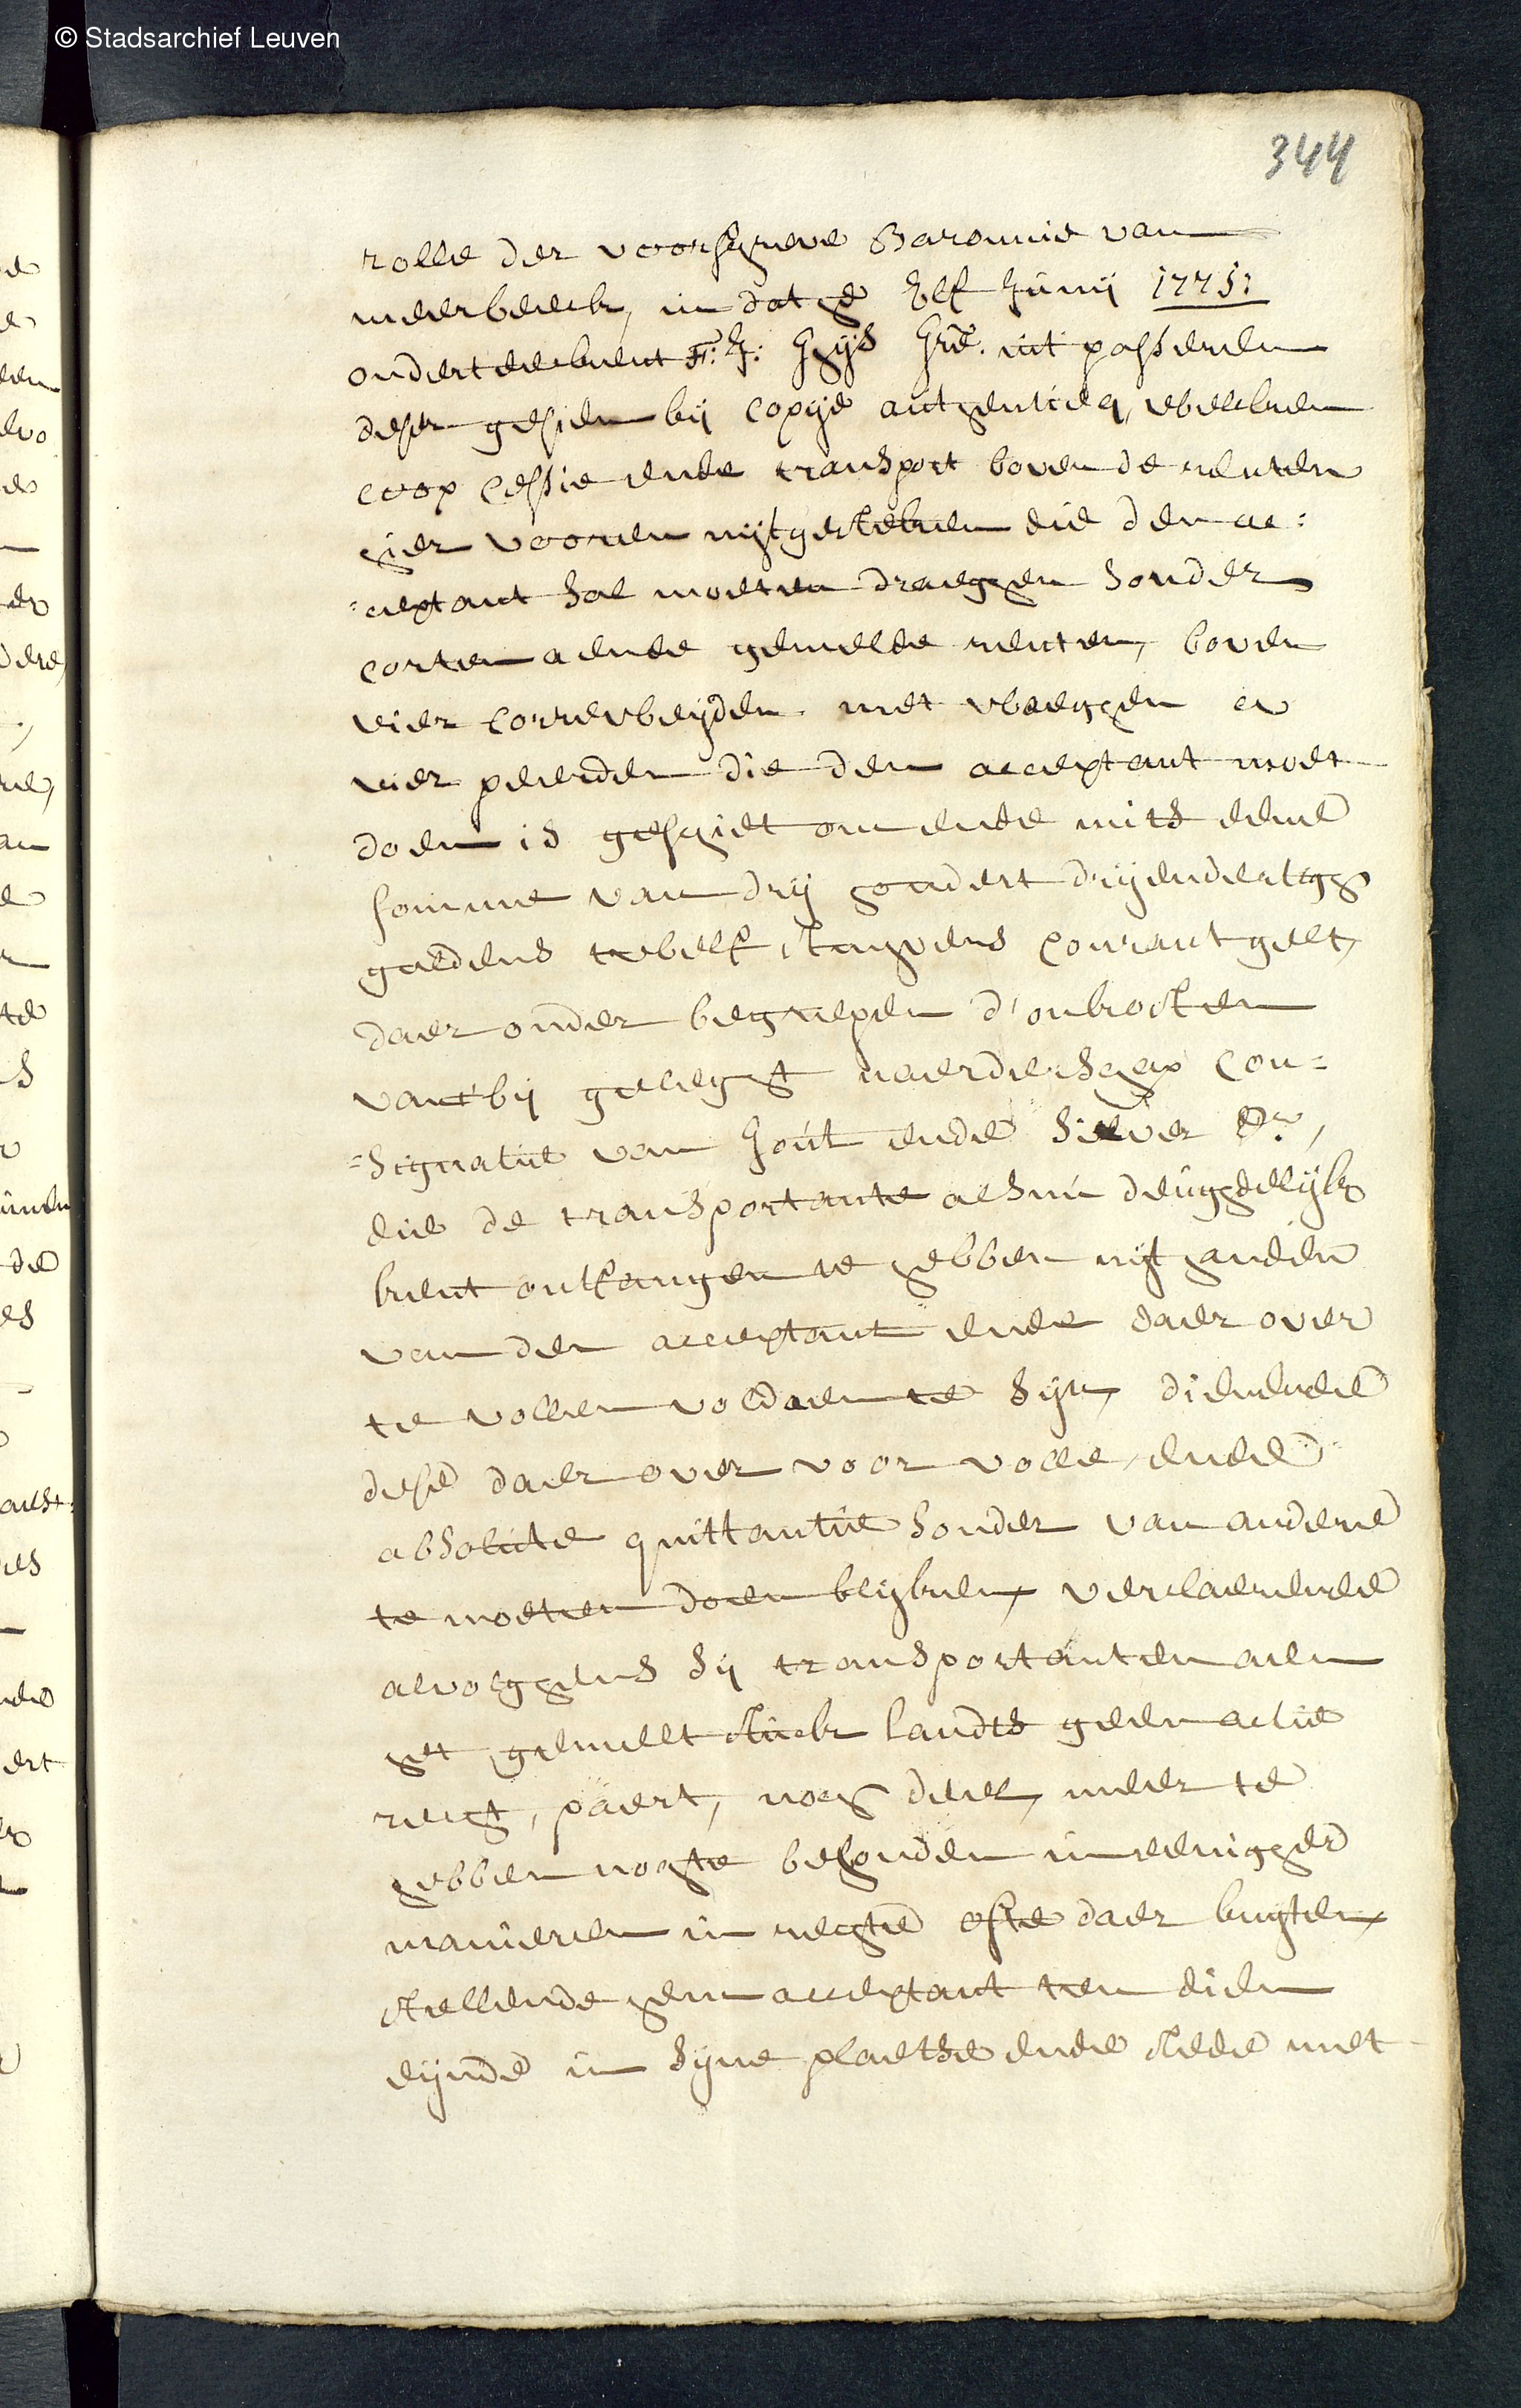 © Stadsarchief Leuven
344
rolle der voorschreve Baronnie van
meerbeeck, in dathe Elf Junij 1775:
onderteeckent F: J: Ghijs Gre. int passeren
deser gesien bij copije authenticq, welcken
coop cessie ende transport boven de renten
hier vooren uijtgesteken die den ac:
=ceptant sal moeten draeghen sonder
corten aende gemelde renten, boven
vier correweijden met waeghen en
vier peerden die den acceptant moet
doen is geschiet om ende mits eene
somme van drij hondert drijendertigh
guldens twelf stuyvers courant gelt,
daer onder begrepen d'onkosten
vant bij geleght naerderschap con=
=signatie van Gout ende silver etc,
die de transportante alhier deughdelijck
kent ontfangen te hebben uijt handen
van den acceptant ende daer over
te vollen voldaen te sijn, dienende
dese daer over voor volle, ende
absolute quittantie sonder van andere
te moeten doen blijken, verclaerende
alvolghens sij transportanten aen
het gemelt stuck landts geen actie
recht, paert, noch deel, meer te
hebben nochte behouden in eenigher
manieren in rechte ofte daer buyten,
stellende hem acceptant ten dien
eijnde in sijne plaetse ende stede met